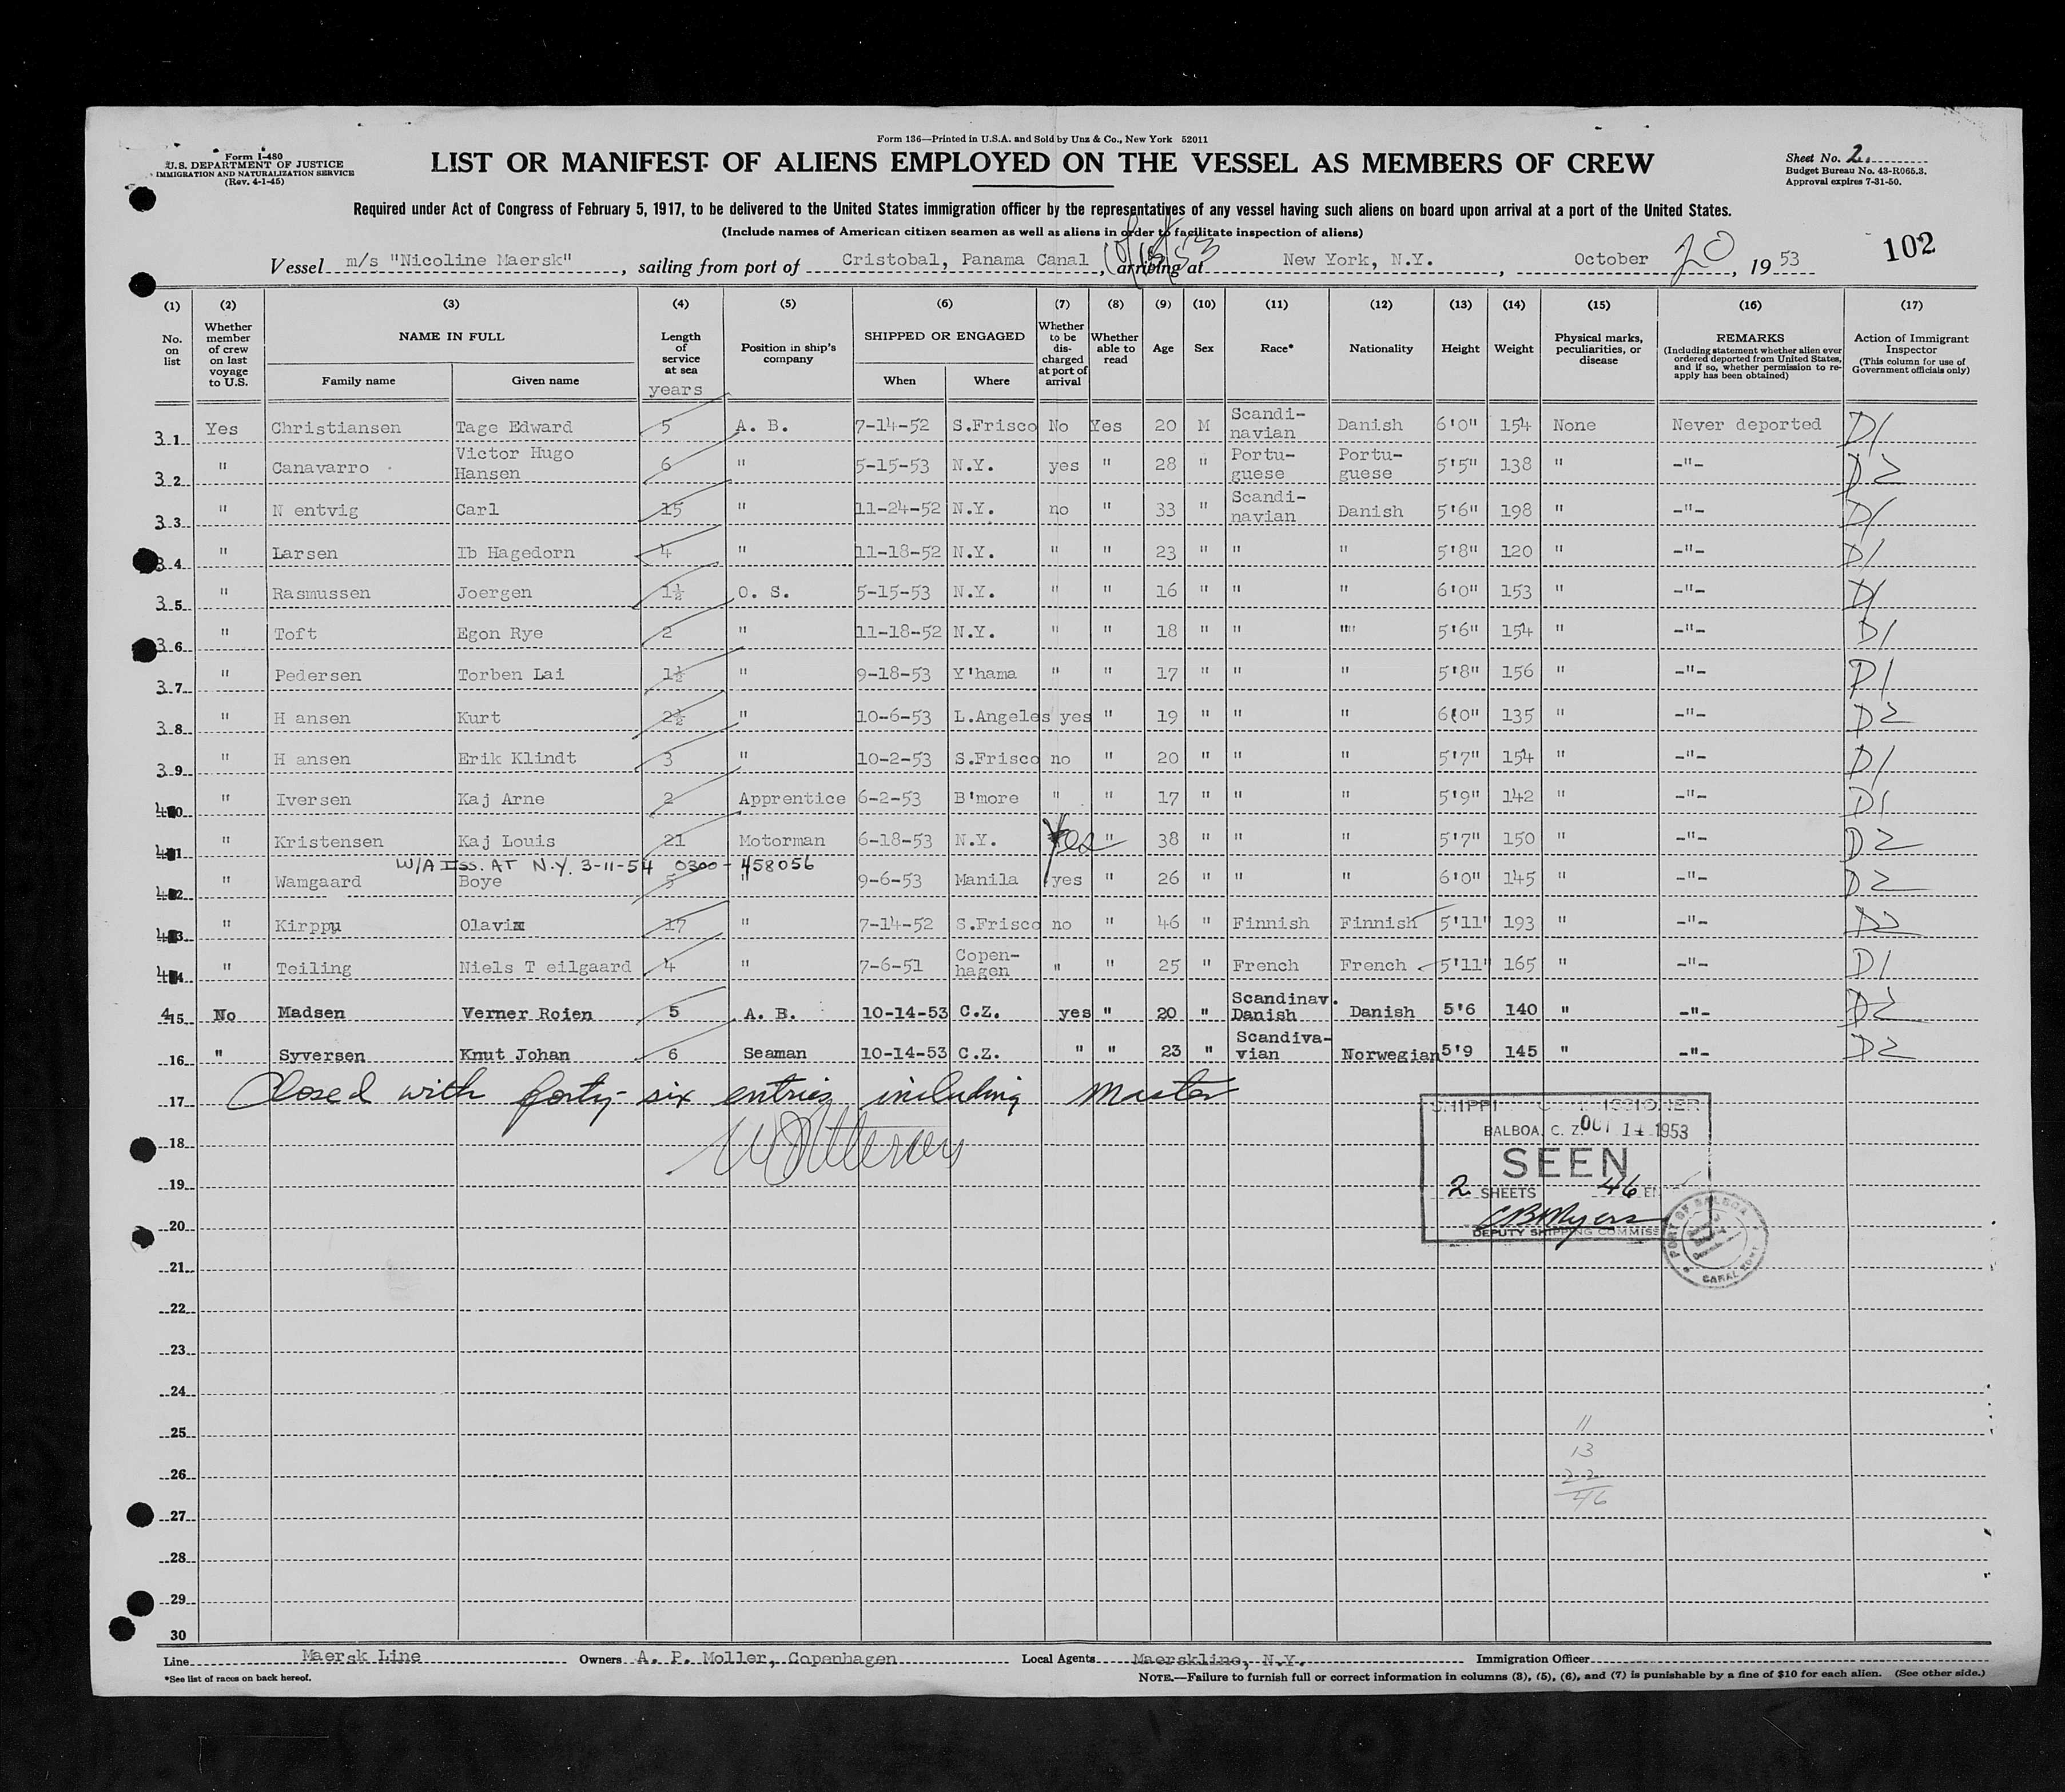 Form 136—Printed in U.S.A. and Sold by Unz & Co., New York 52011
Form I-480
U.S. DEPARTMENT OF JUSTICE
IMMIGRATION AND NATURALIZATION SERVICE
(Rev. 4-1-45)
LIST OR MANIFEST OF ALIENS EMPLOYED ON THE VESSEL AS MEMBERS OF CREW
Sheet No. 2
Budget Bureau No. 43-R065.3.
Approval expires 7-31-50.
Required under Act of Congress of February 5, 1917, to be delivered to the United States immigration officer by the representatives of any vessel having such aliens on board upon arrival at a port of the United States.
(Include names of American citizen seamen as well as aliens in order to facilitate inspection of aliens)
102
Vessel m/s "Nicoline Maersk", sailing from port of Cristobal, Panama Canal, arriving at New York, N.Y., October 20, 1953
(1) (2) (3) (4) (5) (6) (7) (8) (9) (10) (11) (12) (13) (14) (15) (16) (17)
No. on list
Whether member of crew on last voyage to U.S.
NAME IN FULL
Family name Given name
Length of service at sea
years
Position in ship's company
SHIPPED OR ENGAGED
When Where
Whether to be discharged at port of arrival
Whether able to read
Age Sex Race* Nationality Height Weight
Physical marks, peculiarities, or disease
REMARKS
(Including statement whether alien ever ordered deported from United States, and if so, whether permission to reapply has been obtained)
Action of Immigrant Inspector
(This column for use of Government officials only)
31 Yes Christiansen Tage Edward 5 A. B. 7-14-52 S.Frisco No Yes 20 M Scandi-navian Danish 6'0" 154 None Never deported D1
32 " Canavarro Victor Hugo Hansen 6 " 5-15-53 N.Y. yes " 28 " Portu-guese Portu-guese 5'5" 138 " -"- D2
33 " N entvig Carl 15 " 11-24-52 N.Y. no " 33 " Scandi-navian Danish 5'6" 198 " -"- D1
34 " Larsen Ib Hagedorn 4 " 11-18-52 N.Y. " " 23 " " " 5'8" 120 " -"- D1
35 " Rasmussen Joergen 1½ O. S. 5-15-53 N.Y. " " 16 " " " 6'0" 153 " -"- D1
36 " Toft Egon Rye 2 " 11-18-52 N.Y. " " 18 " " "" 5'6" 154 " -"- D1
37 " Pedersen Torben Lai 1½ " 9-18-53 Y'hama " " 17 " " " 5'8" 156 " -"- D1
38 " H ansen Kurt 2½ " 10-6-53 L.Angeles yes " 19 " " " 6'0" 135 " -"- D2
39 " H ansen Erik Klindt 3 " 10-2-53 S.Frisco no " 20 " " " 5'7" 154 " -"- D1
40 " Iversen Kaj Arne 2 Apprentice 6-2-53 B'more " " 17 " " " 5'9" 142 " -"- D1
41 " Kristensen Kaj Louis 21 Motorman 6-18-53 N.Y. Yes " 38 " " " 5'7" 150 " -"- D2
W/A Iss. AT N.Y. 3-11-54 0300-458056
42 " Wamgaard Boye 5 " 9-6-53 Manila yes " 26 " " " 6'0" 145 " -"- D2
43 " Kirppu Olavi 17 " 7-14-52 S.Frisco no " 46 " Finnish Finnish 5'11" 193 " -"- D2
44 " Teiling Niels T eilgaard 4 " 7-6-51 Copen-hagen " " 25 " French French 5'11" 165 " -"- D1
415 No Madsen Verner Roien 5 A. B. 10-14-53 C.Z. yes " 20 " Scandinav. Danish Danish 5'6 140 " -"- D2
16 " Syversen Knut Johan 6 Seaman 10-14-53 C.Z. " " 23 " Scandiva-vian Norwegian 5'9 145 " -"- D2
17 Closed with forty-six entries including Master
18
19
20
21
22
23
24
25
26
27
28
29
30
BALBOA, C. Z. OCT 14 1953
SEEN
2 SHEETS 46
CB Myers
DEPUTY SHIPPING COMMISS
PORT OF BALBOA
CANAL ZONE
11
13
22
46
Line Maersk Line Owners A. P. Moller, Copenhagen Local Agents Maerskline, N.Y. Immigration Officer
*See list of races on back hereof.
NOTE.—Failure to furnish full or correct information in columns (3), (5), (6), and (7) is punishable by a fine of $10 for each alien. (See other side.)